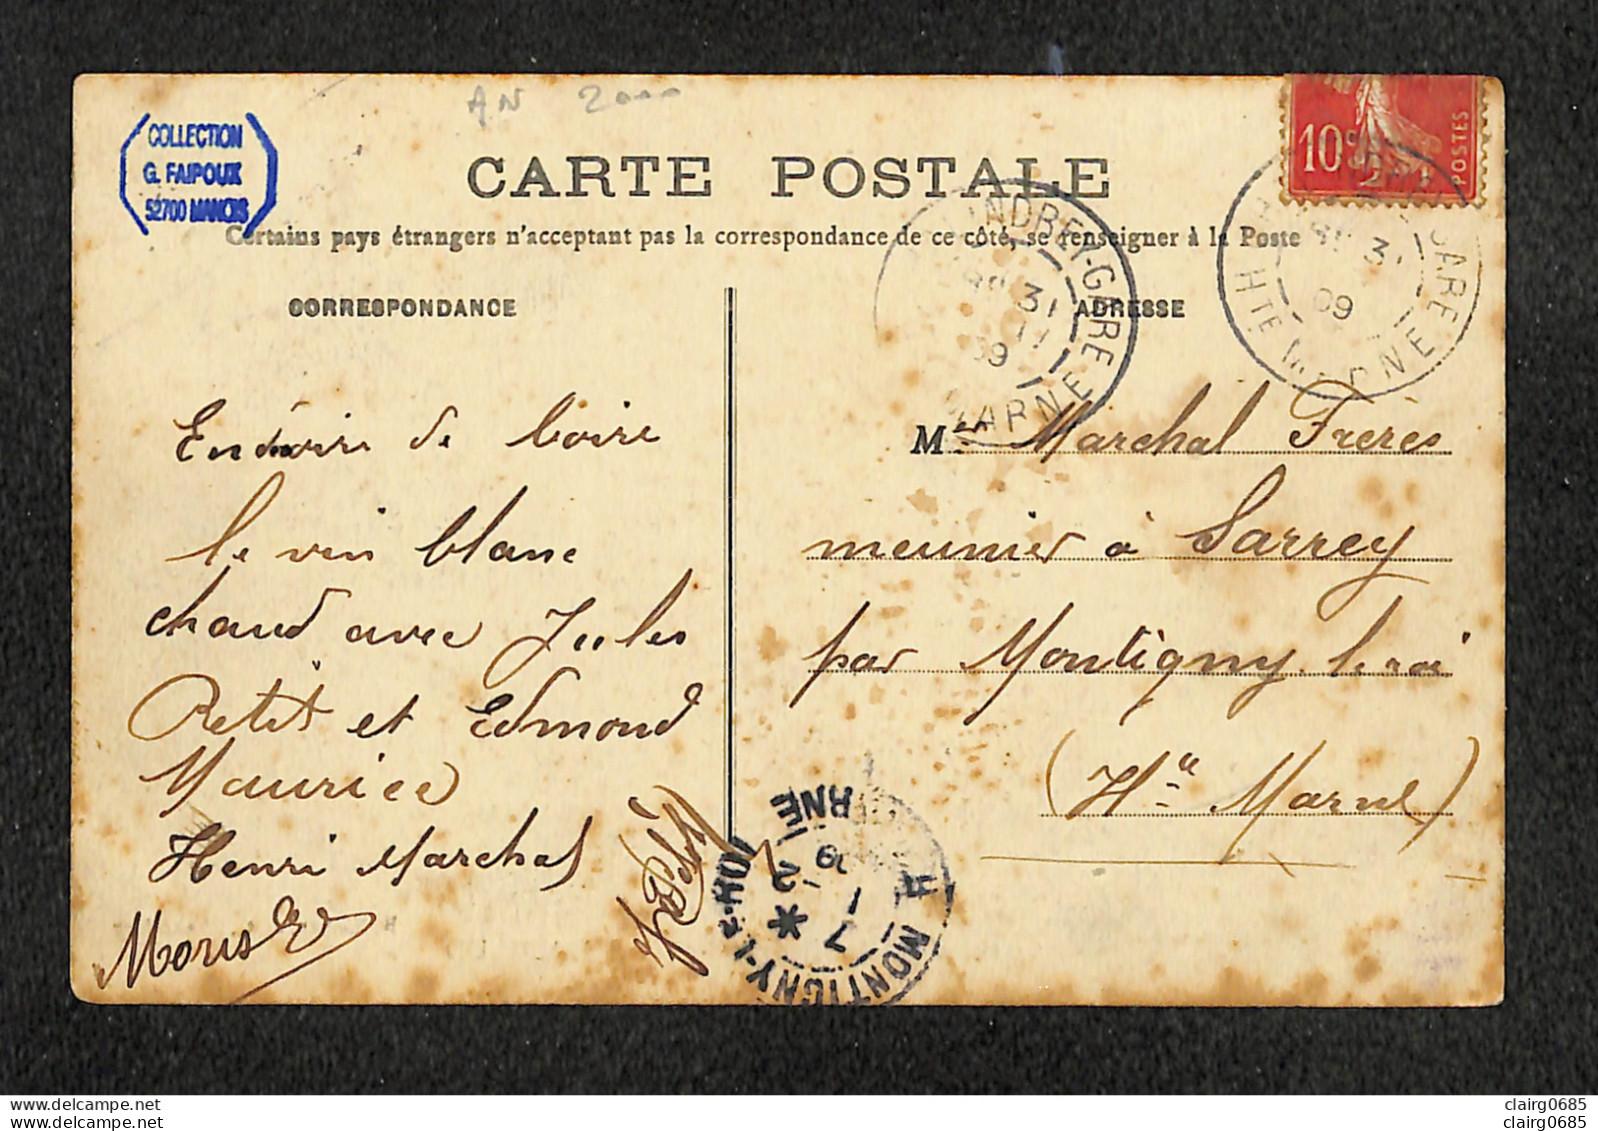 AN 2000
COLLECTION
G. FAIPOUX
52700 MANOIS
CARTE POSTALE
Certains pays étrangers n'acceptant pas la correspondance de ce côté, se renseigner à la Poste
CORRESPONDANCE
ADRESSE
10c
POSTES
NDREY-GARE
31
11
09
MARNE
31
09
GARE
HTE MARNE
de boire
le vin blanc
chaud avec Jules
Petit et Edmond
Maurice
Henri Marchal
M. Marchal Frères
meunier à Sarrey
par Montigny le roi
(Hte Marne)
MONTIGNY-LE-ROI
H MARNE
7 * 2
1
09
www.delcampe.net
clairg0685
clairg0685